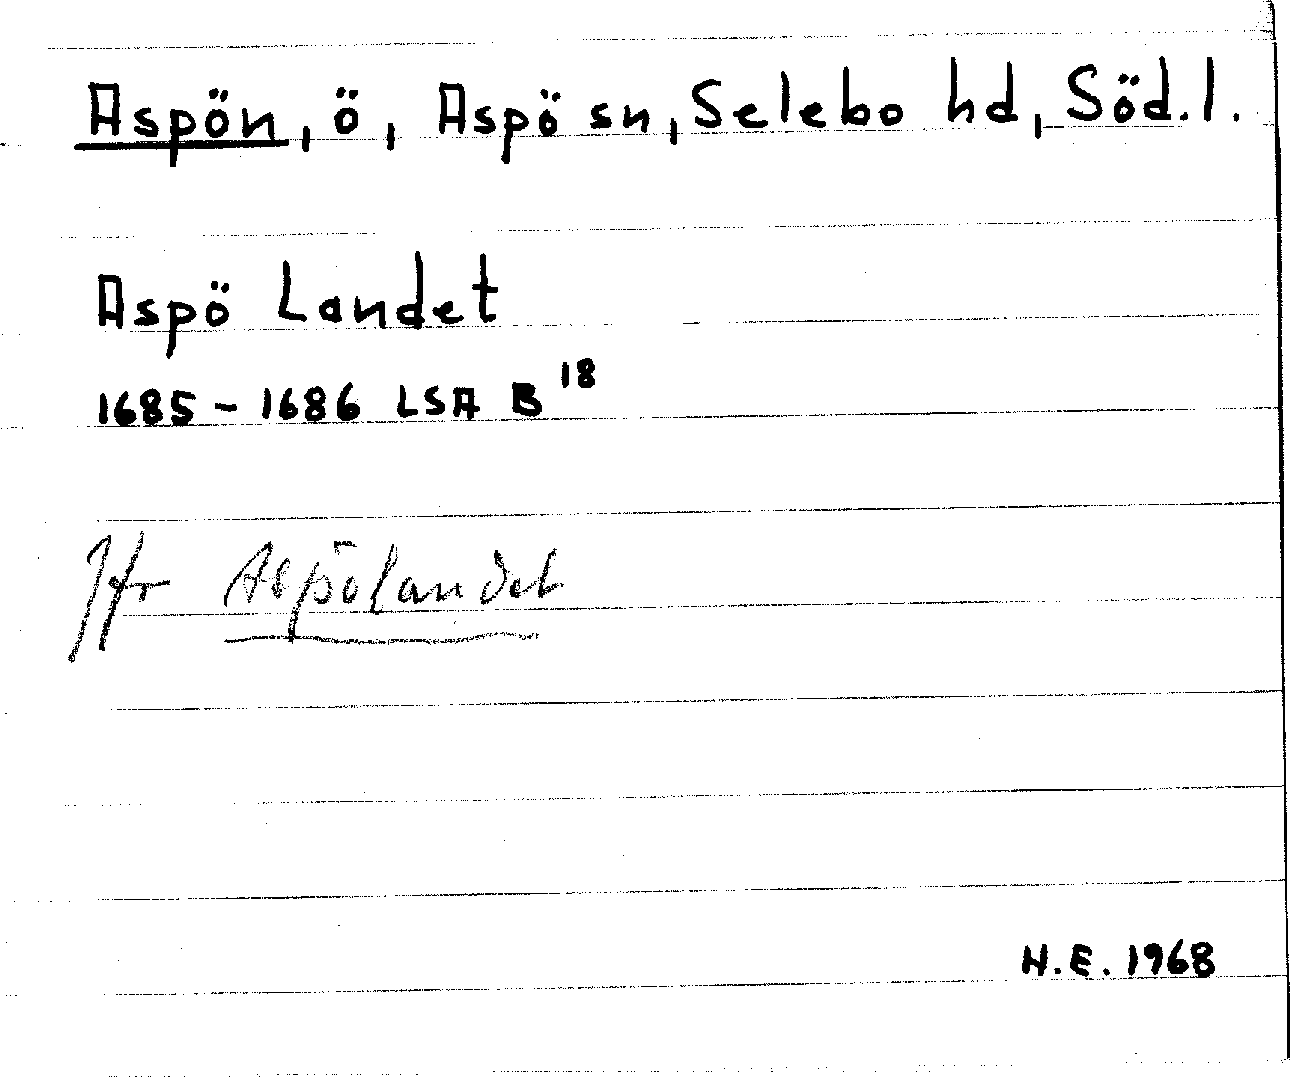 Aspön, ö, Aspö sn, Selebo hd, Söd.l.
Aspö Landet
1685-1686 LSA B 18
Jfr Aspölandet
H.E. 1968